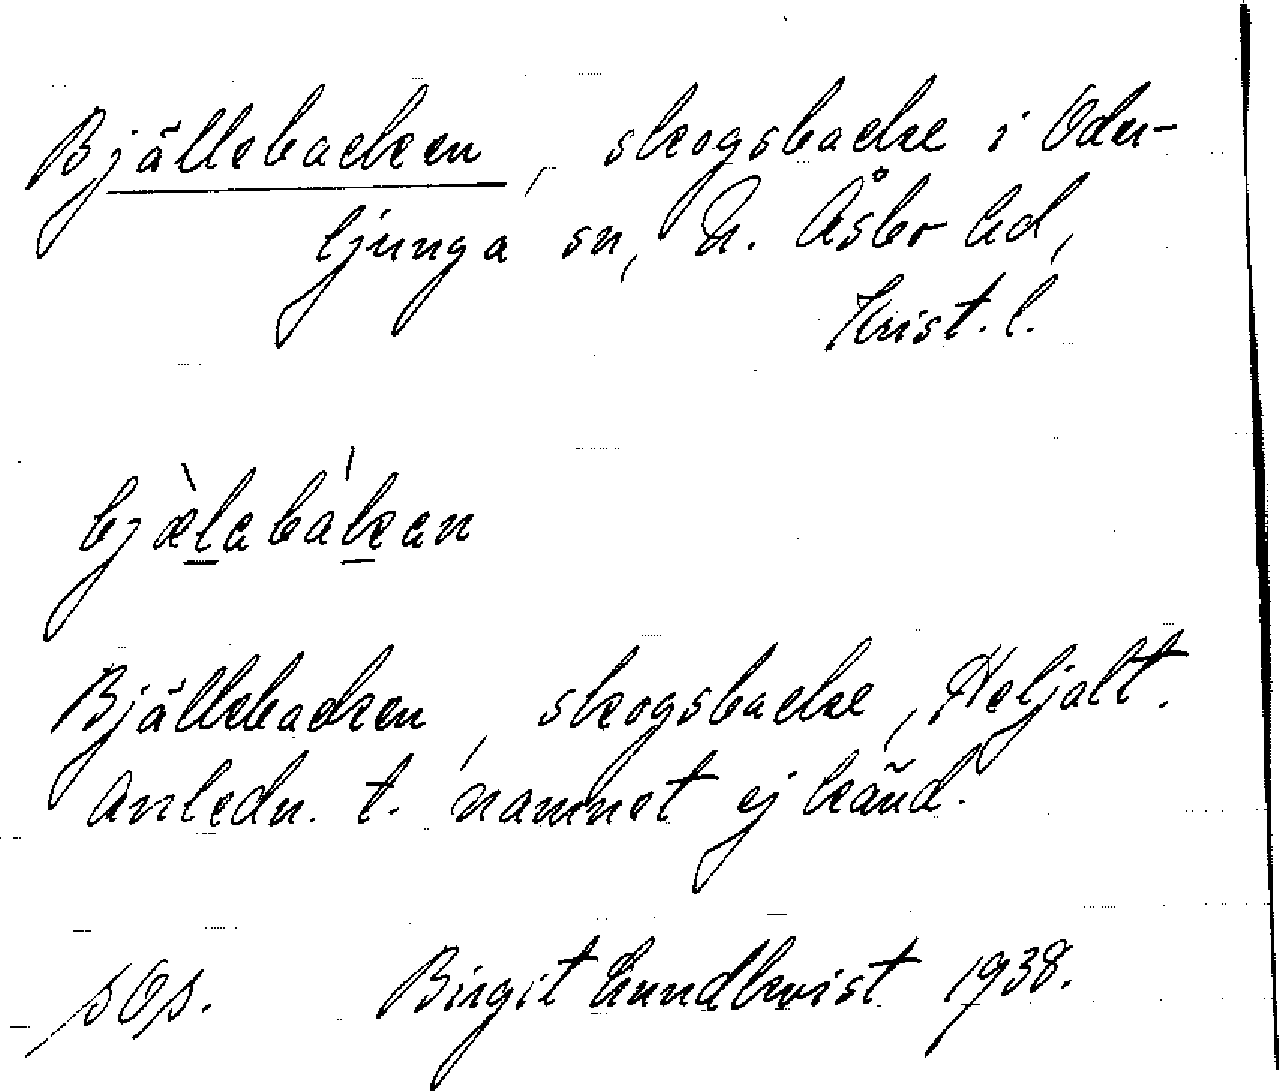 Bjällebacken, skogsbacke i Oder-
ljunga sn, N. Åsbo hd,
Krist. l.
bjæ̀labákan
Bjällebacken, skogsbacke, Heljalt.
Anledn. t. namnet ej känd.
Birgit Lundkvist 1938.